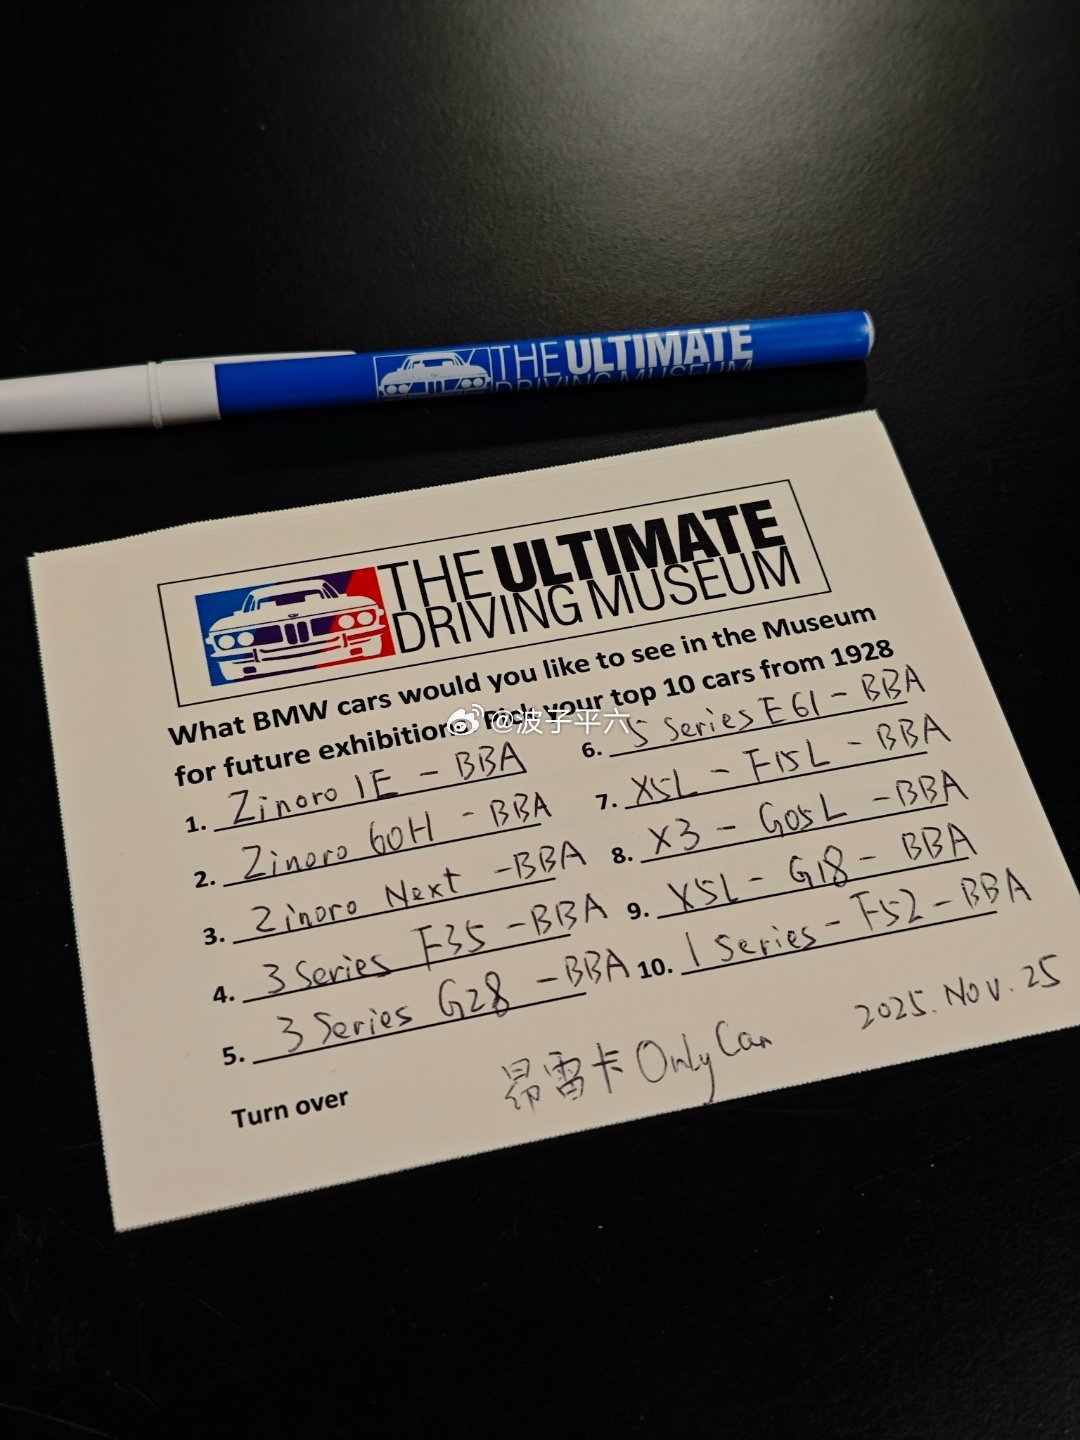 THE ULTIMATE
DRIVING MUSEUM
THE ULTIMATE
DRIVING MUSEUM
What BMW cars would you like to see in the Museum
for future exhibitions pick your top 10 cars from 1928
@波子平六
1. Zinoro 1E - BBA
2. Zinoro 60H - BBA
3. Zinoro Next - BBA
4. 3 Series F35 - BBA
5. 3 Series G28 - BBA
6. 5 Series E61 - BBA
7. X5L - F15L - BBA
8. X3 - G05L - BBA
9. X5L - G18 - BBA
10. 1 Series - F52 - BBA
2025. Nov. 25
昂雷卡 OnlyCar
Turn over